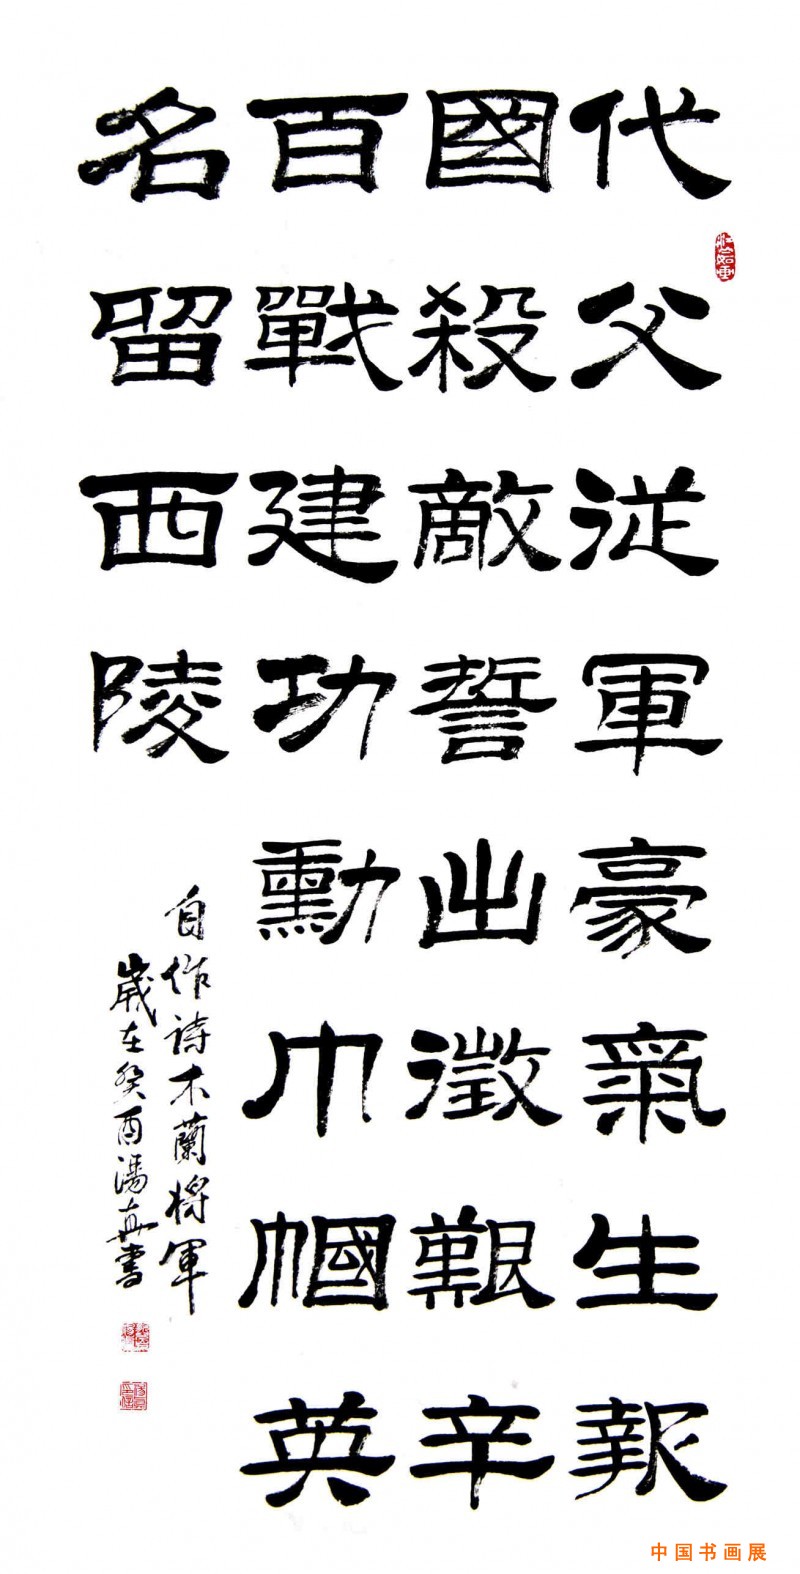 代父從軍豪氣生報
國殺敵誓出徵艱辛
百戰建功勳巾幗英
名留西陵
自作詩木蘭將軍
歲在癸酉湯真書
中国书画展